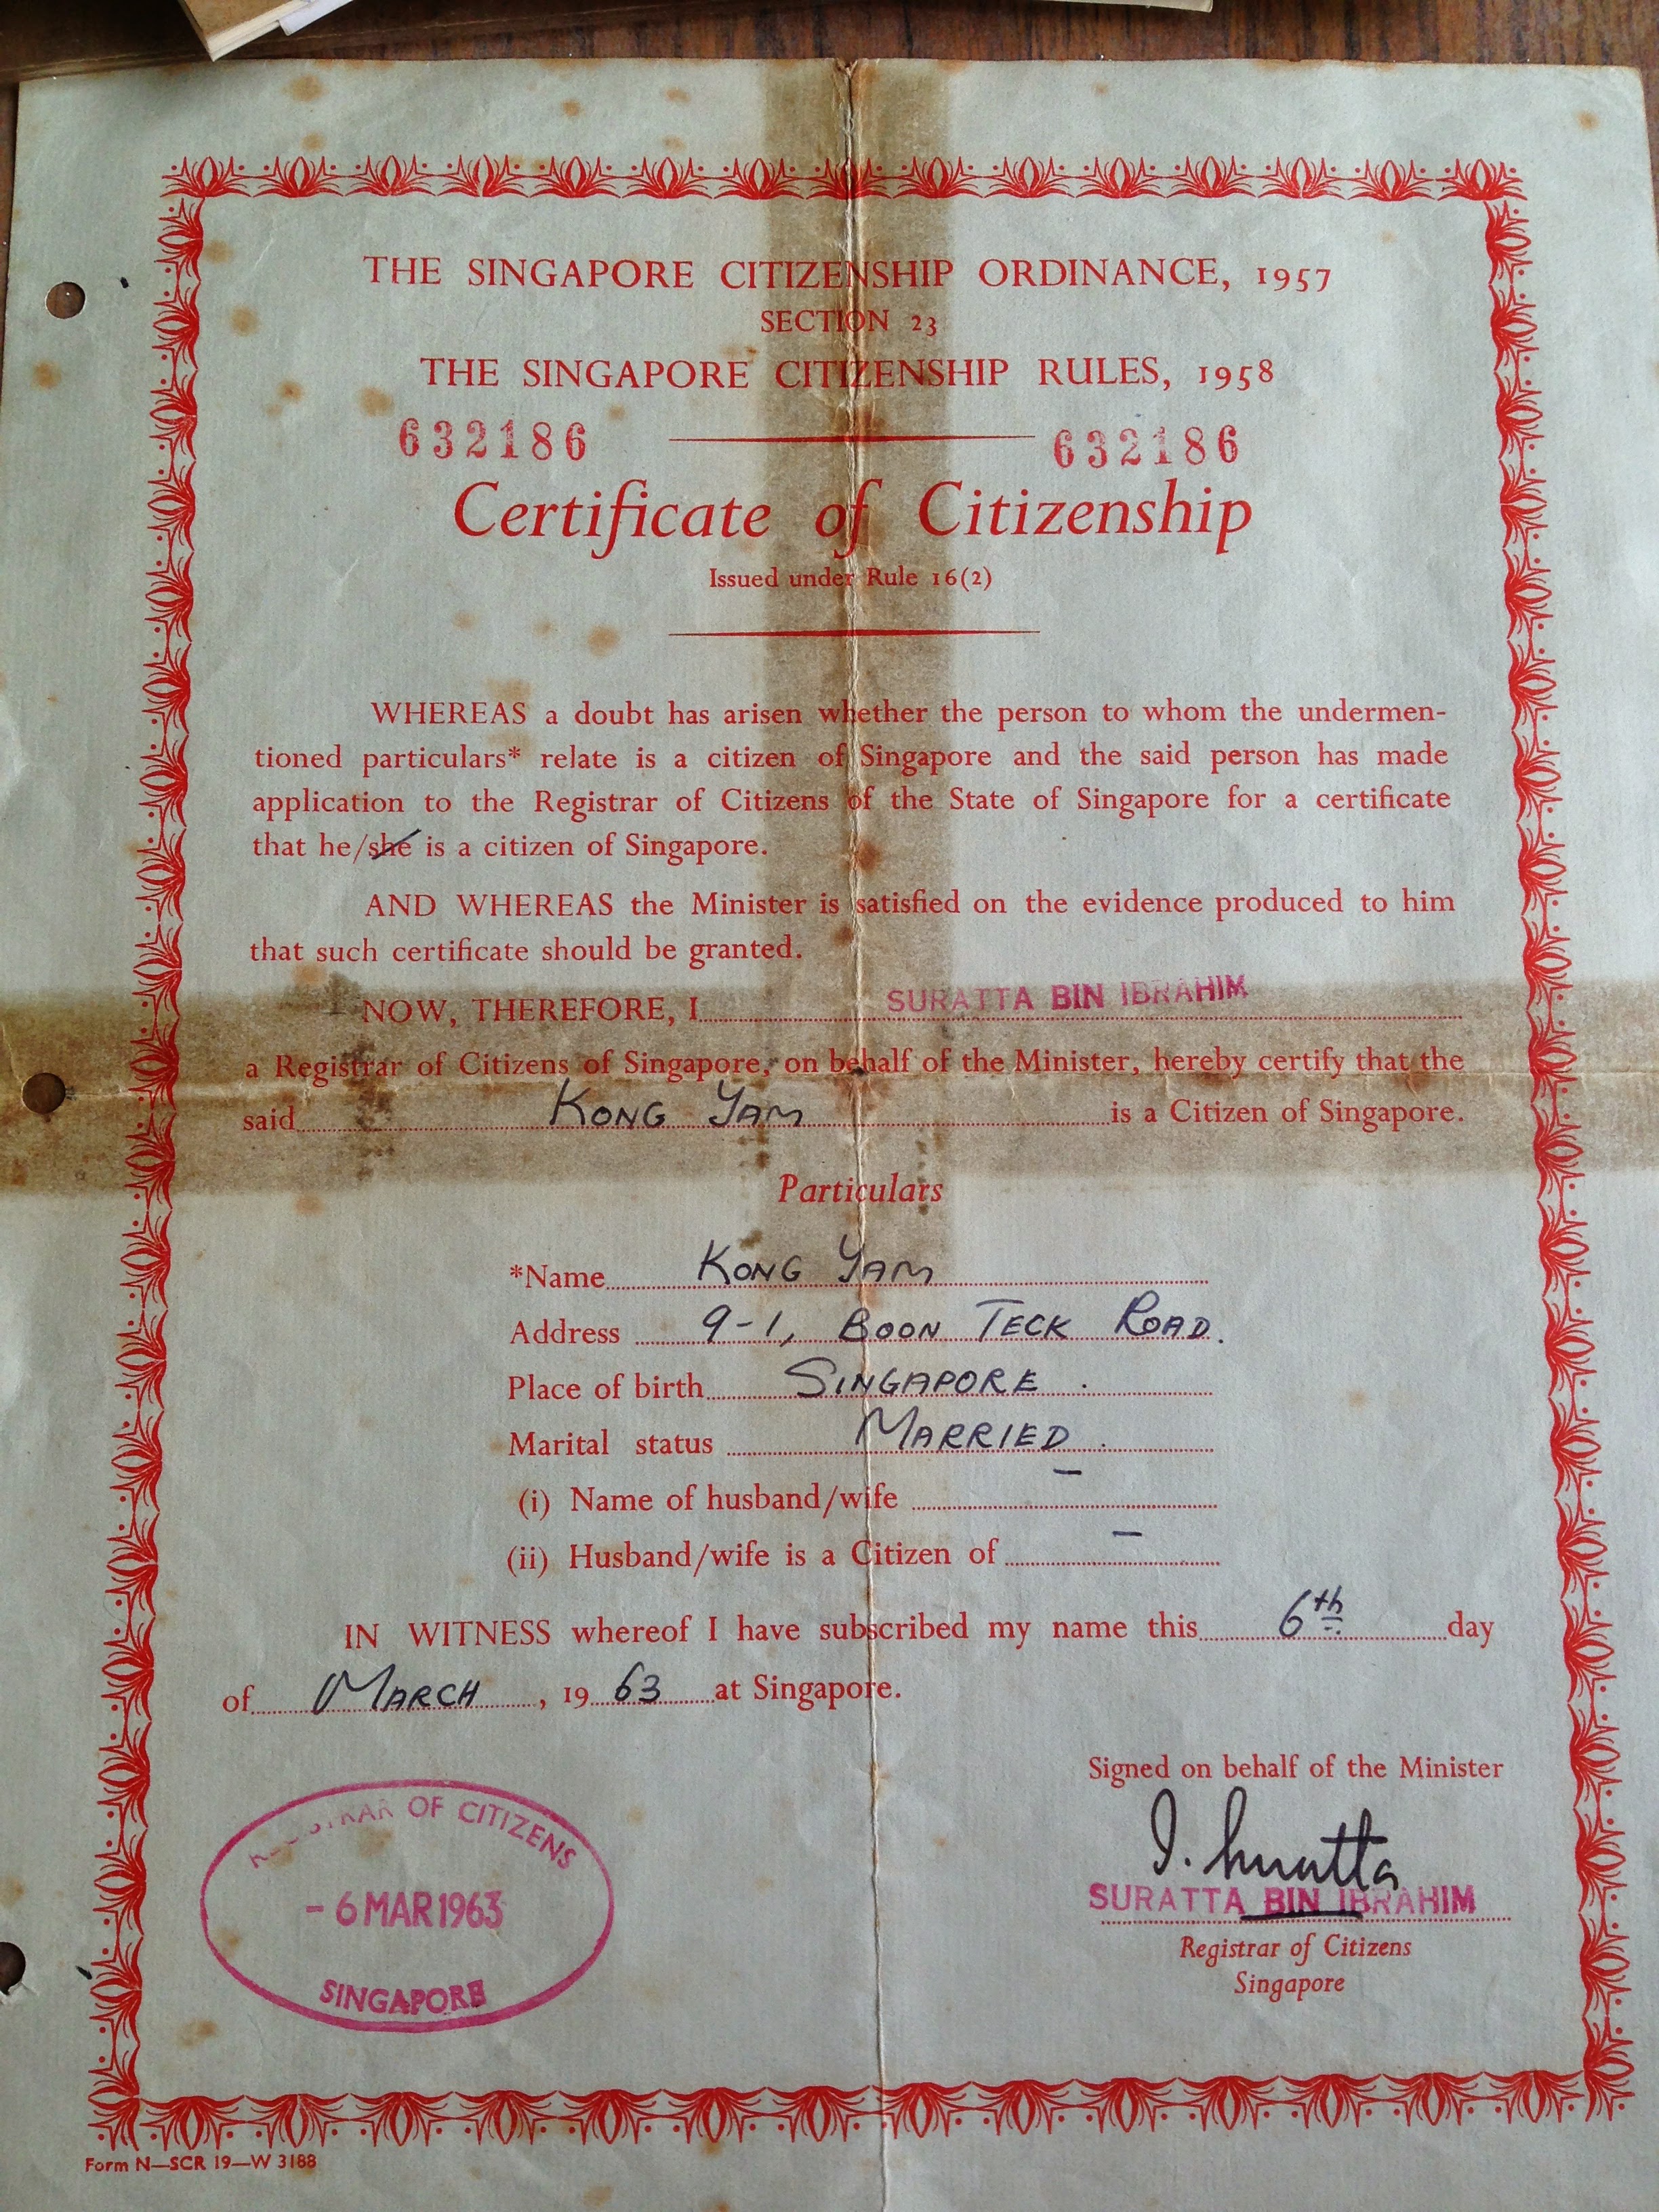 THE SINGAPORE CITIZENSHIP ORDINANCE, 1957
SECTION 23
THE SINGAPORE CITIZENSHIP RULES, 1958
632186 632186
Certificate of Citizenship
Issued under Rule 16(2)
WHEREAS a doubt has arisen whether the person to whom the undermen-
tioned particulars* relate is a citizen of Singapore and the said person has made
application to the Registrar of Citizens of the State of Singapore for a certificate
that he/she is a citizen of Singapore.
AND WHEREAS the Minister is satisfied on the evidence produced to him
that such certificate should be granted.
NOW, THEREFORE, I SURATTA BIN IBRAHIM
a Registrar of Citizens of Singapore, on behalf of the Minister, hereby certify that the
said KONG YAM is a Citizen of Singapore.
Particulars
*Name KONG YAM
Address 9-1, BOON TECK ROAD.
Place of birth SINGAPORE.
Marital status MARRIED.
(i) Name of husband/wife –
(ii) Husband/wife is a Citizen of –
IN WITNESS whereof I have subscribed my name this 6th day
of MARCH, 1963 at Singapore.
Signed on behalf of the Minister
I. Suratta
SURATTA BIN IBRAHIM
Registrar of Citizens
Singapore
REGISTRAR OF CITIZENS
- 6 MAR 1963
SINGAPORE
Form N—SCR 19—W 3188